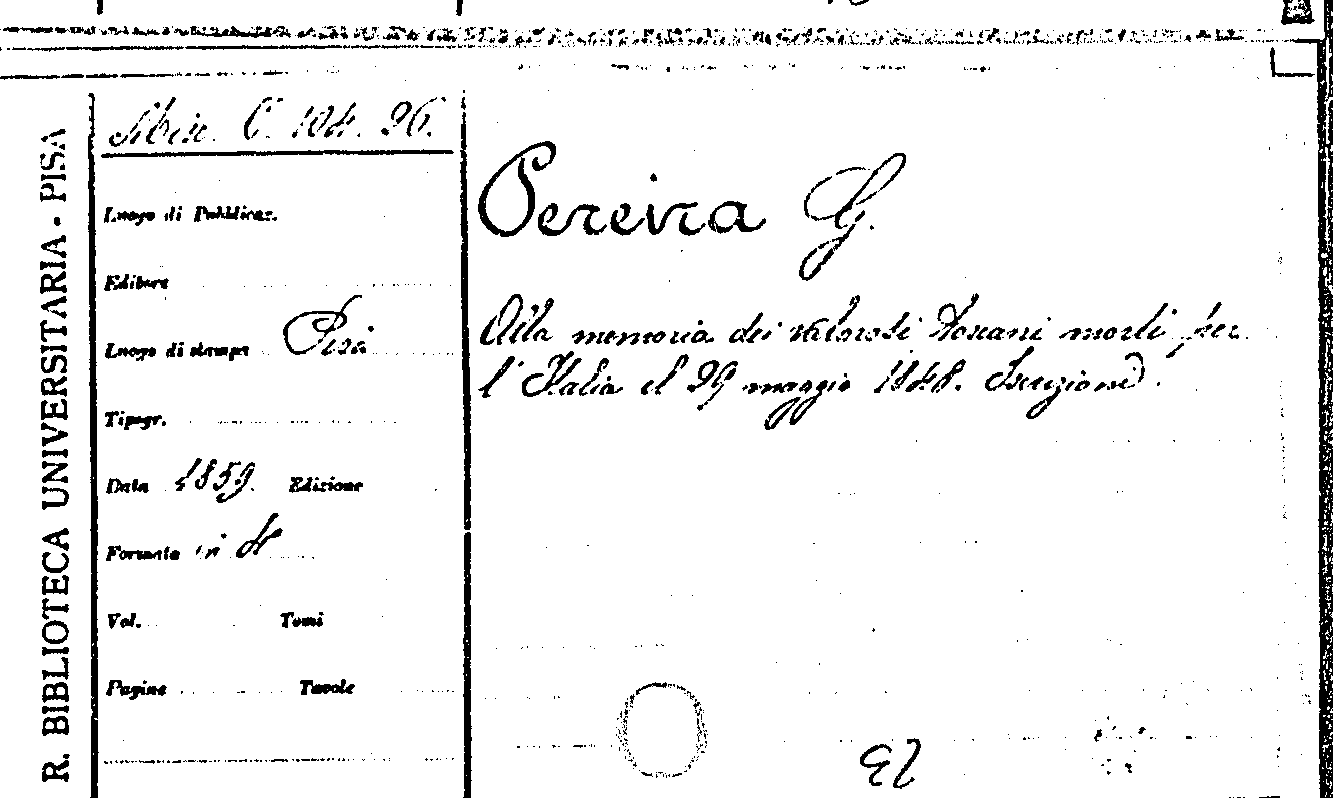 R. BIBLIOTECA UNIVERSITARIA - PISA
Misc. C. 104. 26.
Luogo di Pubblicaz.
Editore
Luogo di stampa Pisa
Tipogr.
Data 1859. Edizione
Formato in 4º
Vol. Tomi
Pagine Tavole
Pereira G.
Alla memoria dei valorosi Toscani morti per
l'Italia il 29 maggio 1848. Iscrizione.